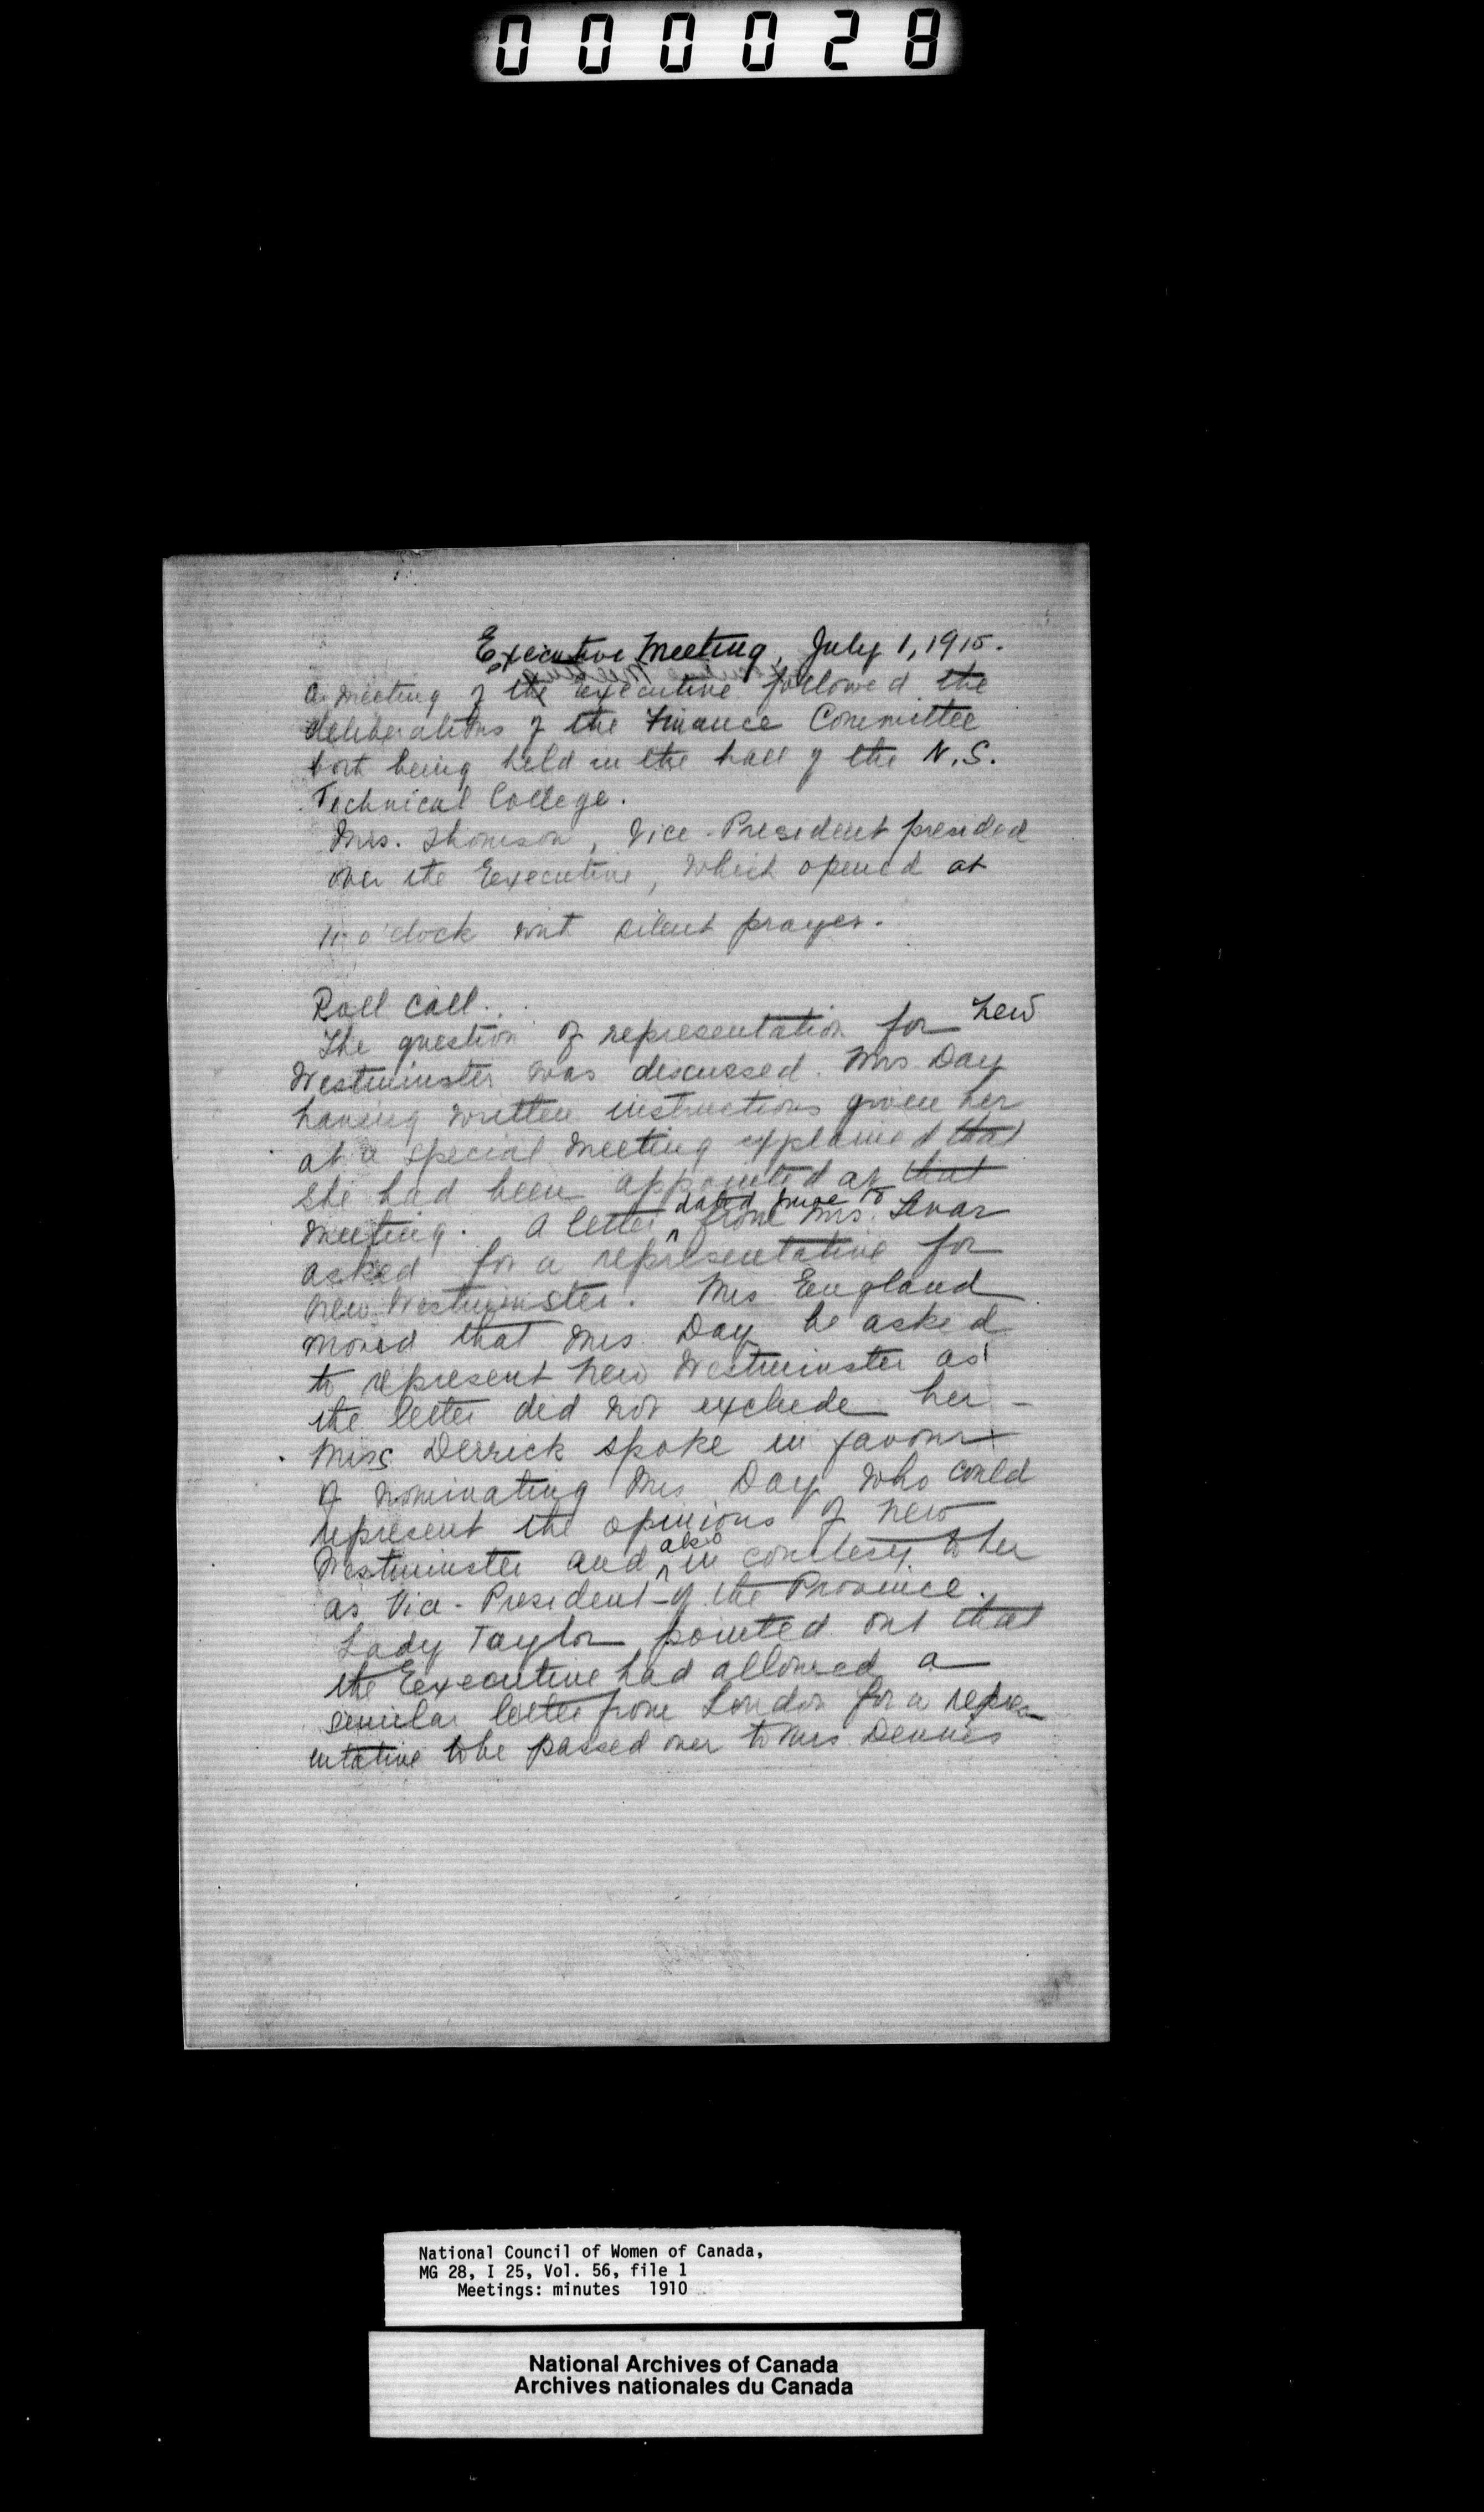 000028
Executive Meeting, July 1, 1910.
A meeting of the Executive followed the
deliberations of the Finance Committee
both being held in the hall of the N.S.
Technical College.
Mrs. Thomson, Vice-President presided
over the Executive, which opened at
11 o'clock with silent prayer.
Roll call.
The question of representation for New
Westminster was discussed. Mrs Day
having written instructions given her
at a special meeting explained that
she had been appointed at that
meeting. A letter dated June from Mrs.
asked for a representative for
New Westminster. Mrs England
moved that Mrs Day be asked
to represent New Westminster as
the letter did not exclude her -
Miss Derrick spoke in favour
of nominating Mrs Day who could
represent the opinions of New
Westminster and also in courtesy to her
as Vice-President of the Province.
Lady Taylor pointed out that
the Executive had allowed a
similar letter from London for a repres-
entative to be passed over to Mrs Dennis
National Council of Women of Canada,
MG 28, I 25, Vol. 56, file 1
Meetings: minutes 1910
National Archives of Canada
Archives nationales du Canada